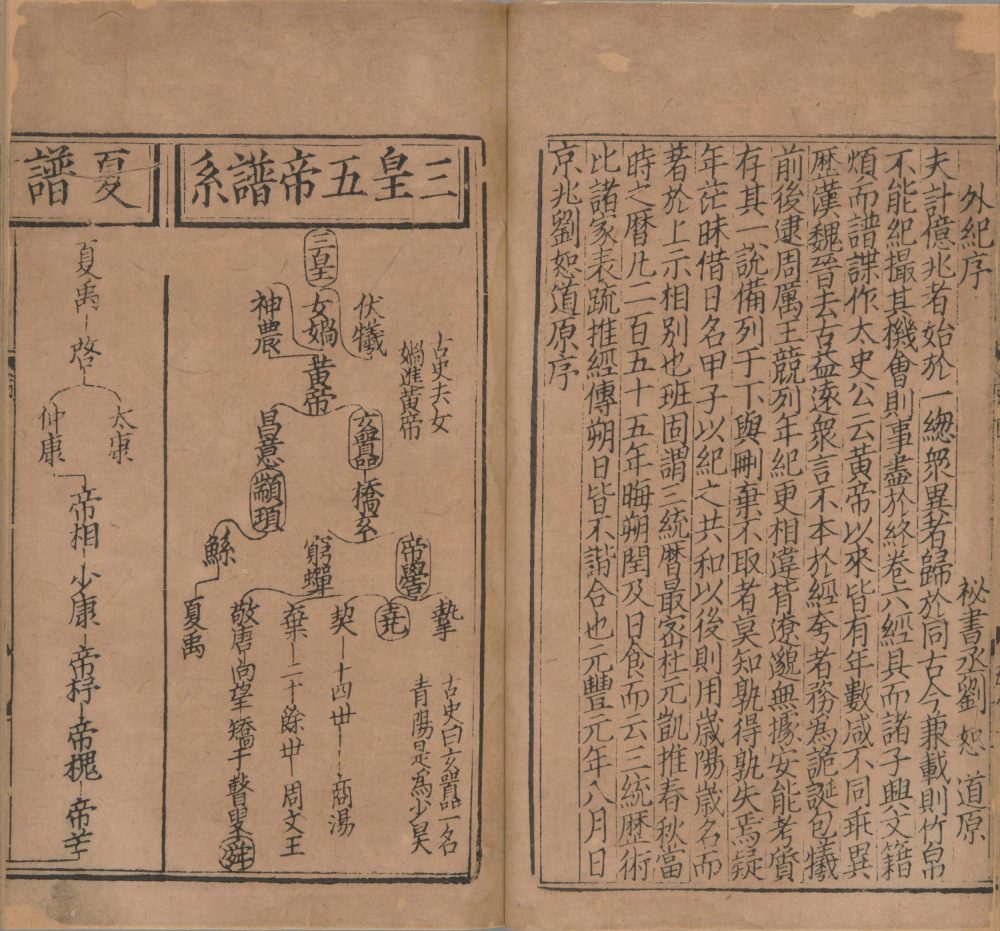 外紀序
秘書丞劉恕道原
夫計億兆者始於一總衆異者歸於同古今兼載則竹帛
不能紀撮其機會則事盡於終卷六經具而諸子興文籍
煩而譜諜作太史公云黃帝以來皆有年數咸不同乖異
歷漢魏晉去古益遠衆言不本於經夸者務爲詭誕包犧
前後逮周厲王競列年紀更相違背遼邈無據安能考質
存其一說備列于下與刪棄不取者莫知孰得孰失焉疑
年茫昧借日名甲子以紀之共和以後則用歲陽歲名而
著於上示相別也班固謂三統曆最密杜元凱推春秋當
時之曆凡二百五十五年晦朔閏及日食而云三統歷術
比諸家表疏推經傳朔日皆不諧合也元豐元年八月日
京兆劉恕道原序
三皇五帝譜系
三皇
伏犧
女媧
神農
古史夫女
媧進黃帝
黃帝
玄囂
橋玄
昌意
顓頊
帝嚳
窮蟬
鯀
摯
堯
契 十四世 商湯
棄 二十餘世 周文王
敬唐 向望 矯牛 瞽叟 舜
夏禹
古史曰玄囂一名
青陽是爲少昊
夏譜
夏禹
啓
太康
仲康
帝相 少康 帝杼 帝槐 帝芒